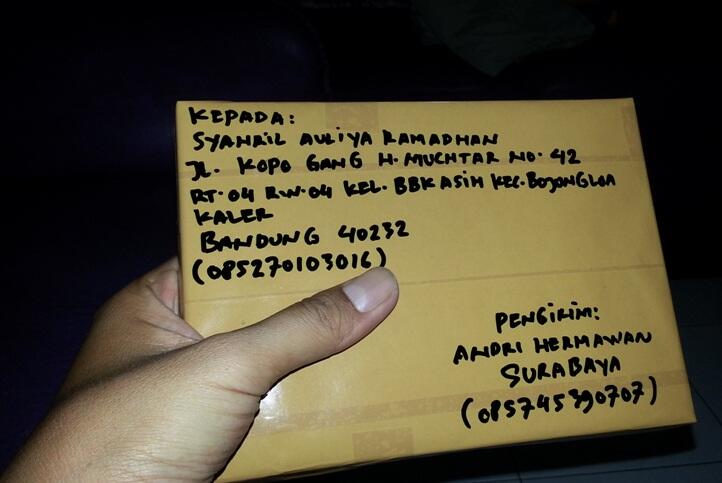 KEPADA:
SYAHRIL AULIYA RAMADHAN
JL. KOPO GANG H. MUCHTAR NO. 42
RT.04 RW.04 KEL. BBKASIH KEC. BOJONGLOA
KALER
BANDUNG 40232
(085270103016)
PENGIRIM:
ANDRI HERMAWAN
SURABAYA
(085745390707)